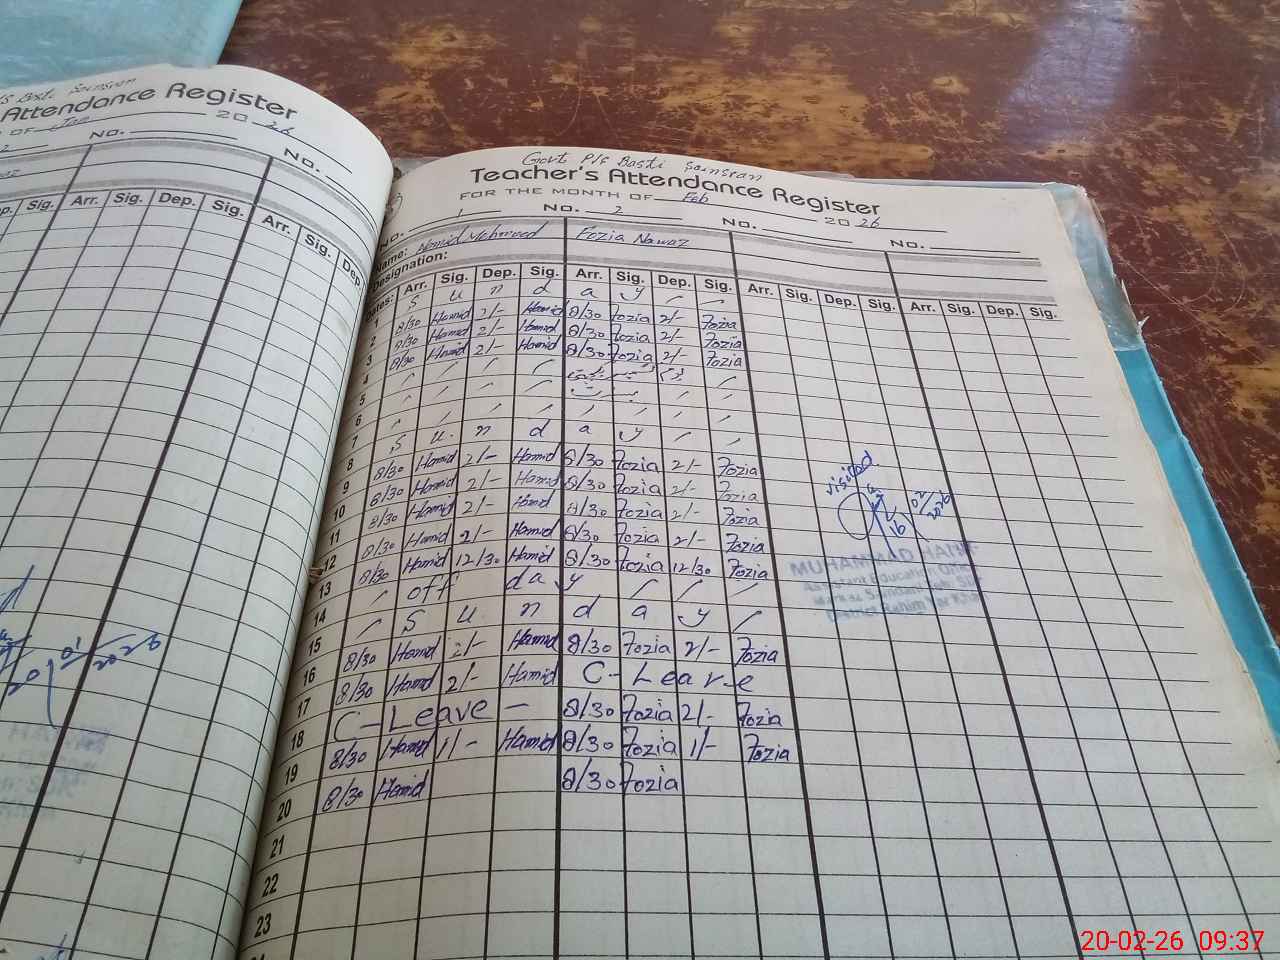 Bast. Sainsran
Attendance Register
OF Jan 20 26
NO. NO.
Sig. Arr. Sig. Dep. Sig. Arr. Sig. Dep
20/01/2026
Govt P/S Basti Sainsran
Teacher's Attendance Register
FOR THE MONTH OF Feb 20 26
NO. 1 NO. 2 NO. NO.
Name: Hamid Mehmood Fozia Nawaz
Designation:
Dates: Arr. Sig. Dep. Sig. Arr. Sig. Dep. Sig. Arr. Sig. Dep. Sig. Arr. Sig. Dep. Sig.
1 S u n d a y
2 8/30 Hamid 2/- Hamid 8/30 Fozia 2/- Fozia
3 8/30 Hamid 2/- Hamid 8/30 Fozia 2/- Fozia
4 8/30 Hamid 2/- Hamid 8/30 Fozia 2/- Fozia
5
6
7
8 S u n d a y
9 8/30 Hamid 2/- Hamid 8/30 Fozia 2/- Fozia
10 8/30 Hamid 2/- Hamid 8/30 Fozia 2/- Fozia
11 8/30 Hamid 2/- Hamid 8/30 Fozia 2/- Fozia
12 8/30 Hamid 2/- Hamid 8/30 Fozia 2/- Fozia
13 8/30 Hamid 12/30 Hamid 8/30 Fozia 12/30 Fozia
14 off day
15 S u n d a y
16 8/30 Hamid 2/- Hamid 8/30 Fozia 2/- Fozia
17 8/30 Hamid 2/- Hamid C-Leave
18 C-Leave - 8/30 Fozia 2/- Fozia
19 8/30 Hamid 1/- Hamid 8/30 Fozia 1/- Fozia
20 8/30 Hamid 8/30 Fozia
21
22
23
visited
16/02/2026
MUHAMMAD HANIF
Assistant Education Officer
District Rahim Yar Khan
20-02-26 09:37